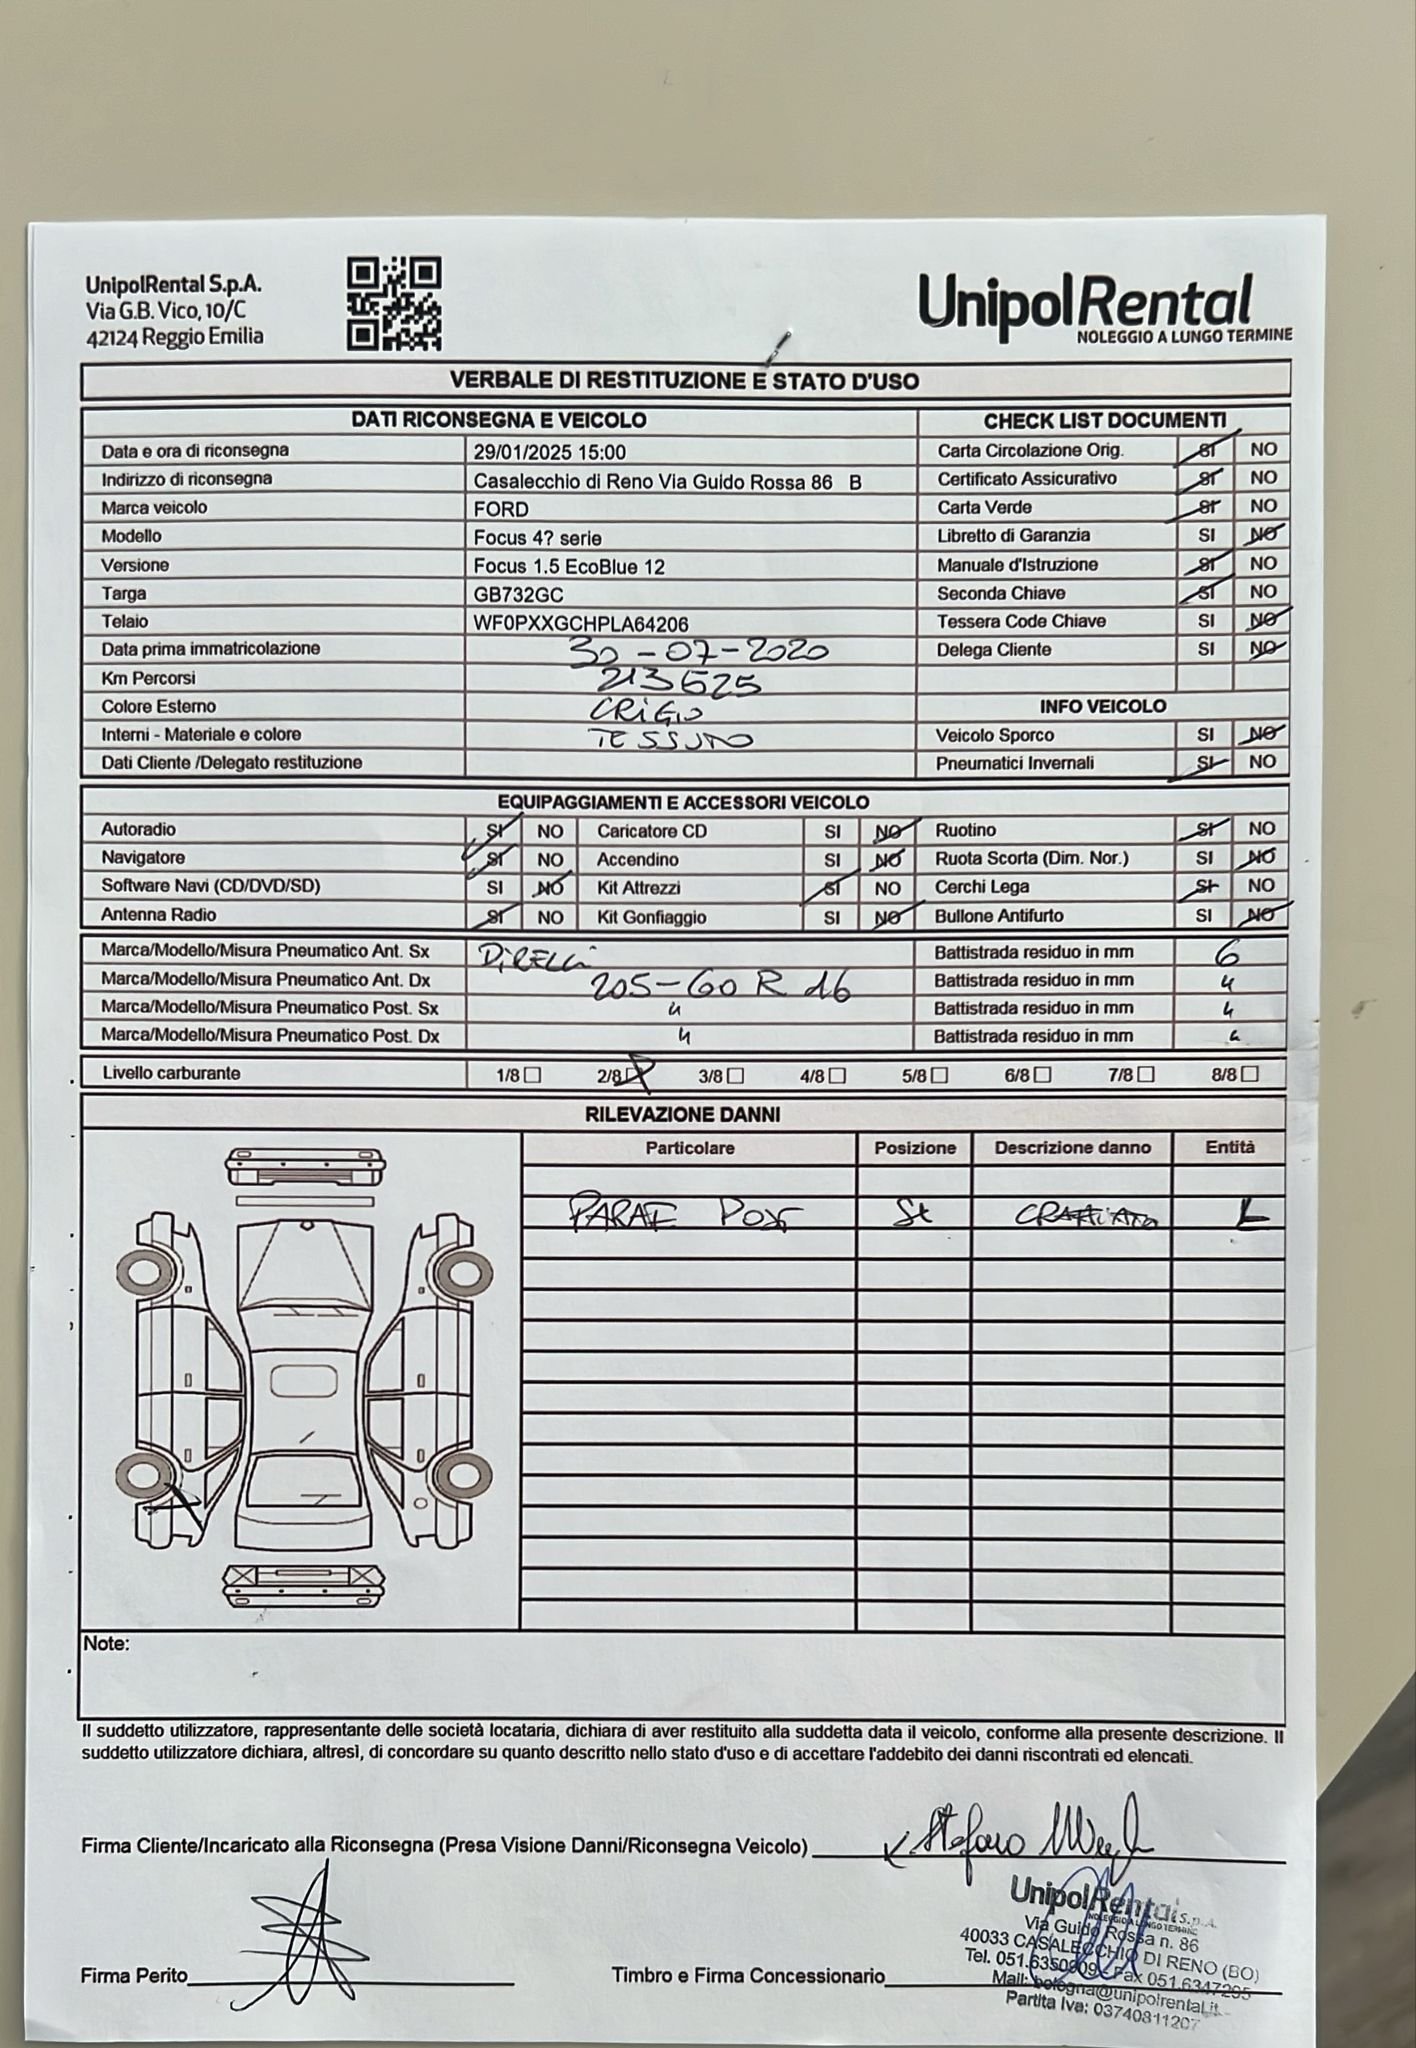 UnipolRental S.p.A.
Via G.B. Vico, 10/C
42124 Reggio Emilia
UnipolRental
NOLEGGIO A LUNGO TERMINE
VERBALE DI RESTITUZIONE E STATO D'USO
DATI RICONSEGNA E VEICOLO CHECK LIST DOCUMENTI
Data e ora di riconsegna 29/01/2025 15:00 Carta Circolazione Orig. SI NO
Indirizzo di riconsegna Casalecchio di Reno Via Guido Rossa 86 B Certificato Assicurativo SI NO
Marca veicolo FORD Carta Verde SI NO
Modello Focus 4? serie Libretto di Garanzia SI NO
Versione Focus 1.5 EcoBlue 12 Manuale d'Istruzione SI NO
Targa GB732GC Seconda Chiave SI NO
Telaio WF0PXXGCHPLA64206 Tessera Code Chiave SI NO
Data prima immatricolazione 30-07-2020 Delega Cliente SI NO
Km Percorsi 213525
Colore Esterno GRIGIO INFO VEICOLO
Interni - Materiale e colore TESSUTO Veicolo Sporco SI NO
Dati Cliente /Delegato restituzione Pneumatici Invernali SI NO
EQUIPAGGIAMENTI E ACCESSORI VEICOLO
Autoradio SI NO Caricatore CD SI NO Ruotino SI NO
Navigatore SI NO Accendino SI NO Ruota Scorta (Dim. Nor.) SI NO
Software Navi (CD/DVD/SD) SI NO Kit Attrezzi SI NO Cerchi Lega SI NO
Antenna Radio SI NO Kit Gonfiaggio SI NO Bullone Antifurto SI NO
Marca/Modello/Misura Pneumatico Ant. Sx PIRELLI Battistrada residuo in mm 6
Marca/Modello/Misura Pneumatico Ant. Dx 205-60 R 16 Battistrada residuo in mm "
Marca/Modello/Misura Pneumatico Post. Sx " Battistrada residuo in mm "
Marca/Modello/Misura Pneumatico Post. Dx " Battistrada residuo in mm "
Livello carburante 1/8 2/8 3/8 4/8 5/8 6/8 7/8 8/8
RILEVAZIONE DANNI
Particolare Posizione Descrizione danno Entità
PARAF POST SX GRAFFIATO L
Note:
Il suddetto utilizzatore, rappresentante delle società locataria, dichiara di aver restituito alla suddetta data il veicolo, conforme alla presente descrizione. Il
suddetto utilizzatore dichiara, altresì, di concordare su quanto descritto nello stato d'uso e di accettare l'addebito dei danni riscontrati ed elencati.
Firma Cliente/Incaricato alla Riconsegna (Presa Visione Danni/Riconsegna Veicolo) Stefano
UnipolRental S.p.A.
NOLEGGIO A LUNGO TERMINE
Via Guido Rossa n. 86
40033 CASALECCHIO DI RENO (BO)
Tel. 051.6350809 - Fax 051.6347295
Mail: bologna@unipolrental.it
Partita Iva: 03740811207
Firma Perito Timbro e Firma Concessionario